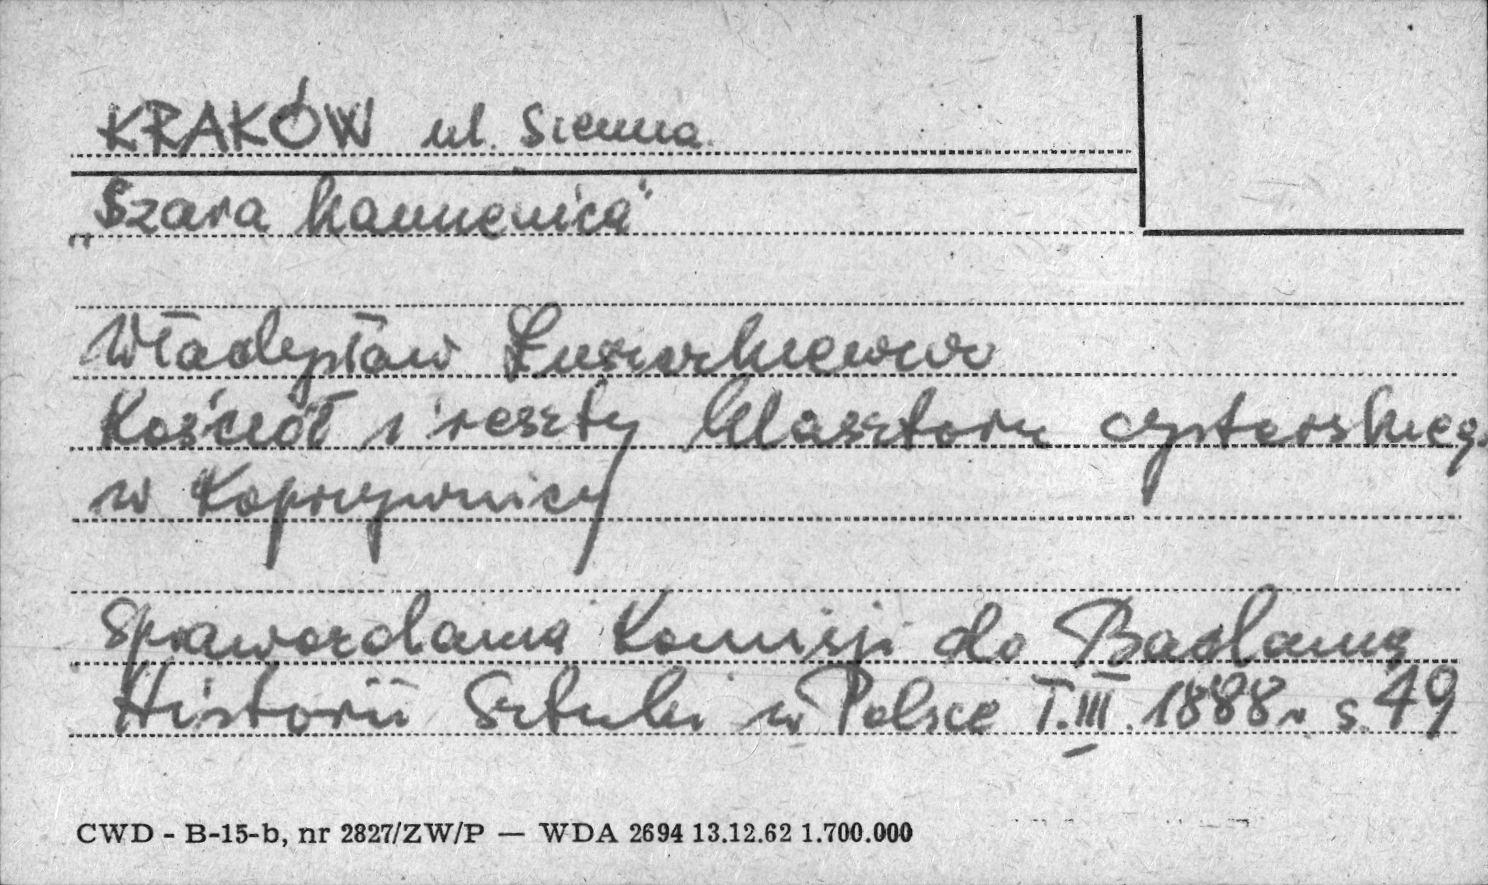 KRAKÓW ul. Sienna
„Szara kamienica"
Władysław Łuszczkiewicz
Kościół i reszty klasztoru cysterskieg.
w Koprzywnicy
Sprawozdania Komisji do Badania
Historii Sztuki w Polsce T.III. 1888r s. 49
CWD - B-15-b, nr 2827/ZW/P — WDA 2694 13.12.62 1.700.000